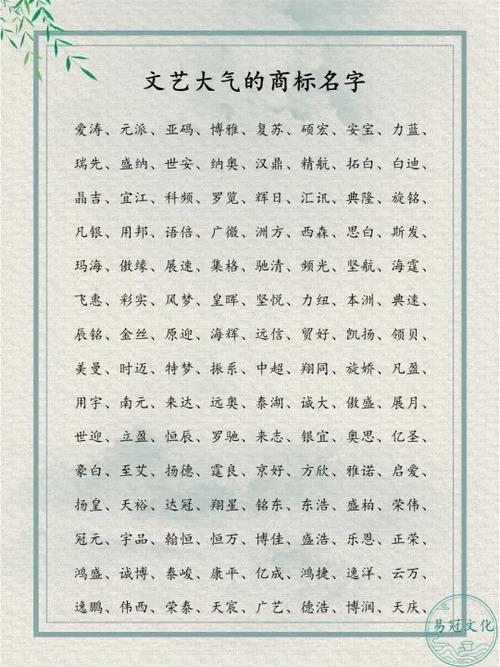 文艺大气的商标名字
爱涛、元派、亚码、博雅、复苏、硕宏、安宝、力蓝、
瑞先、盛纳、世安、纳奥、汉鼎、精航、拓白、白迪、
晶吉、宜江、科频、罗览、辉日、汇讯、典隆、旋铭、
凡银、用邦、语倍、广微、洲方、西森、思白、斯发、
玛海、傲缘、展速、集格、驰清、频光、坚航、海霆、
飞惠、彩实、风梦、皇晖、坚悦、力纽、本洲、典速、
辰铭、金丝、原迎、海辉、远信、贸好、凯扬、领贝、
美曼、时迈、特梦、振系、中超、翔同、旋娇、凡盈、
用宇、南元、来达、远奥、泰湖、诚大、傲盛、展月、
世迎、立盈、恒辰、罗驰、来志、银宜、奥思、亿圣、
豪白、至艾、扬德、霆良、京好、方欣、雅诺、启爱、
扬皇、天裕、达冠、翔星、铭东、东浩、盛柏、荣伟、
冠元、宇品、翰恒、恒万、博佳、盛浩、乐恩、正荣、
鸿盛、诚博、泰峻、康平、亿成、鸿捷、逸洋、云万、
逸鹏、伟西、荣泰、天宸、广艺、德浩、博润、天庆、
易冠文化